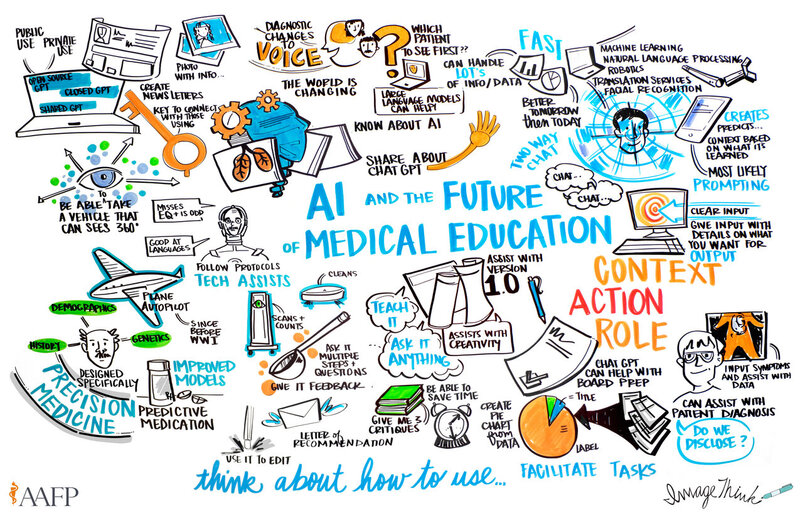 PUBLIC
USE
PRIVATE
USE
OPEN SOURCE
GPT
CLOSED GPT
SHARED GPT
PHOTO
WITH INFO...
CREATE
NEWSLETTERS
KEY TO CONNECT
WITH THOSE
USING
DIAGNOSTIC
CHANGES
TO
VOICE
THE WORLD IS
CHANGING
WHICH
PATIENT
TO SEE FIRST??
LARGE
LANGUAGE MODELS
CAN HELP!
KNOW ABOUT AI
SHARE ABOUT
CHAT GPT
CAN HANDLE
LOT'S
OF INFO/DATA
FAST
MACHINE LEARNING
NATURAL LANGUAGE PROCESSING
ROBOTICS
TRANSLATION SERVICES
FACIAL RECOGNITION
BETTER
TOMORROW
THEM TODAY
TWO WAY
CHAT
CHAT...
CHAT...
CREATES
PREDICTS...
CONTEXT BASED
ON WHAT ITS
LEARNED
MOST LIKELY
PROMPTING
CLEAR INPUT
GIVE INPUT WITH
DETAILS ON WHAT
YOU WANT FOR
OUTPUT
TO
BE ABLE TAKE
A VEHICLE THAT
CAN SEES 360°
MISSES
EQ + IS ODD
GOOD AT
LANGUAGES
FOLLOW PROTOCOLS
TECH ASSISTS
AI AND THE FUTURE
OF MEDICAL EDUCATION
CONTEXT
ACTION
ROLE
PLANE
AUTOPILOT
SINCE
BEFORE
WWI
DEMOGRAPHICS
HISTORY
GENETICS
DESIGNED
SPECIFICALLY
PRECISION
MEDICINE
IMPROVED
MODELS
PREDICTIVE
MEDICATION
CLEANS
SCANS +
COUNTS
ASK IT
MULTIPLE
STEPS +
QUESTIONS
GIVE IT FEEDBACK
TEACH
IT
ASK IT
ANYTHING
ASSIST WITH
VERSION
1.0
ASSISTS WITH
CREATIVITY
USE IT TO EDIT
LETTER OF
RECOMMENDATION
GIVE ME 3
CRITIQUES
BE ABLE TO
SAVE TIME
CREATE
PIE
CHART
FROM
DATA
= TITLE
LABEL
CHAT GPT
CAN HELP WITH
BOARD PREP
FACILITATE TASKS
INPUT SYMPTOMS
AND ASSIST WITH
DATA
CAN ASSIST WITH
PATIENT DIAGNOSIS
DO WE
DISCLOSE?
think about how to use...
AAFP
ImageThink